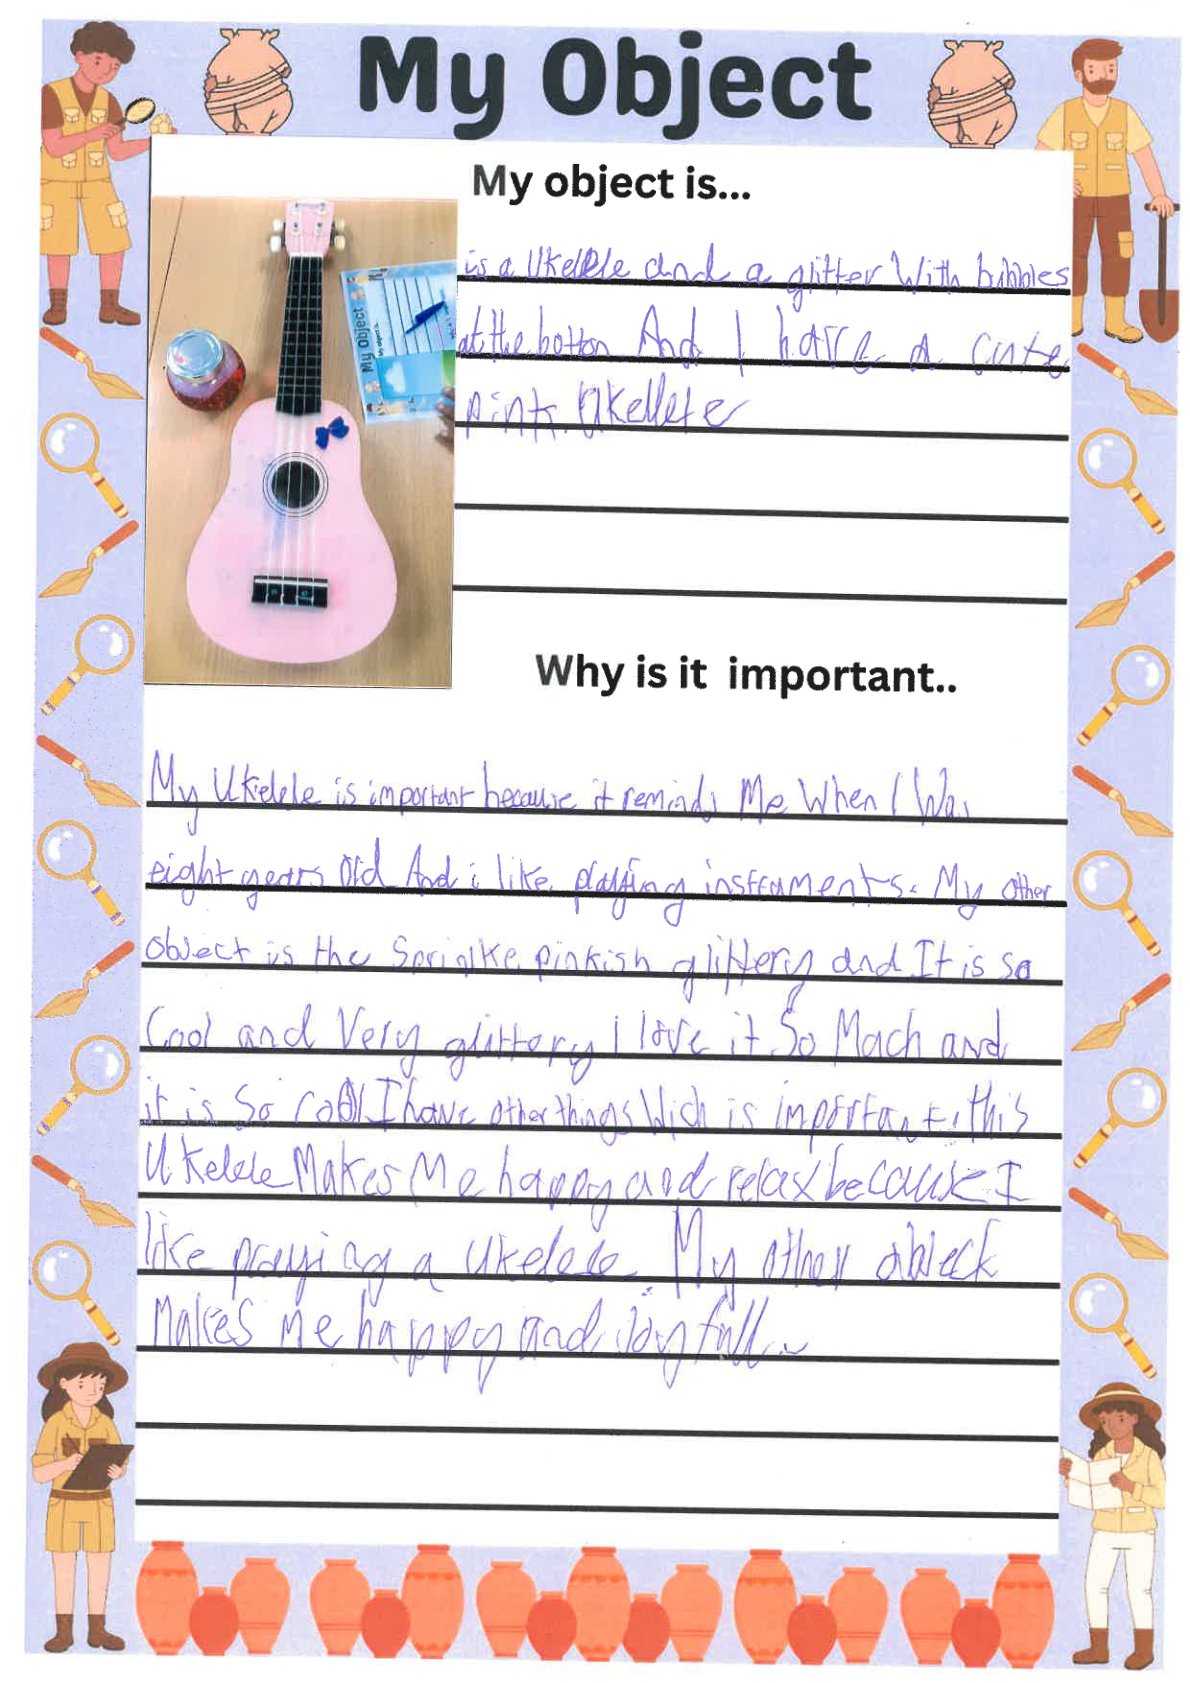 My Object
My object is...
is a Ukelele and a glitter With bubbles
at the botton And I have a cute
pink Ukellete
My Object
Why is it important..
My Ukelele is important because it reminds Me When I Was
eight years Old And i like playing instraments. My other
object is the Sprinlke pinkish glittery and It is so
Cool and Very glittery I love it So Mach and
it is So cool I have other things Wich is important. this
Ukelele Makes Me happy and relax because I
like praying a Ukelele. My other obieck
Makes me happy and Joy full.